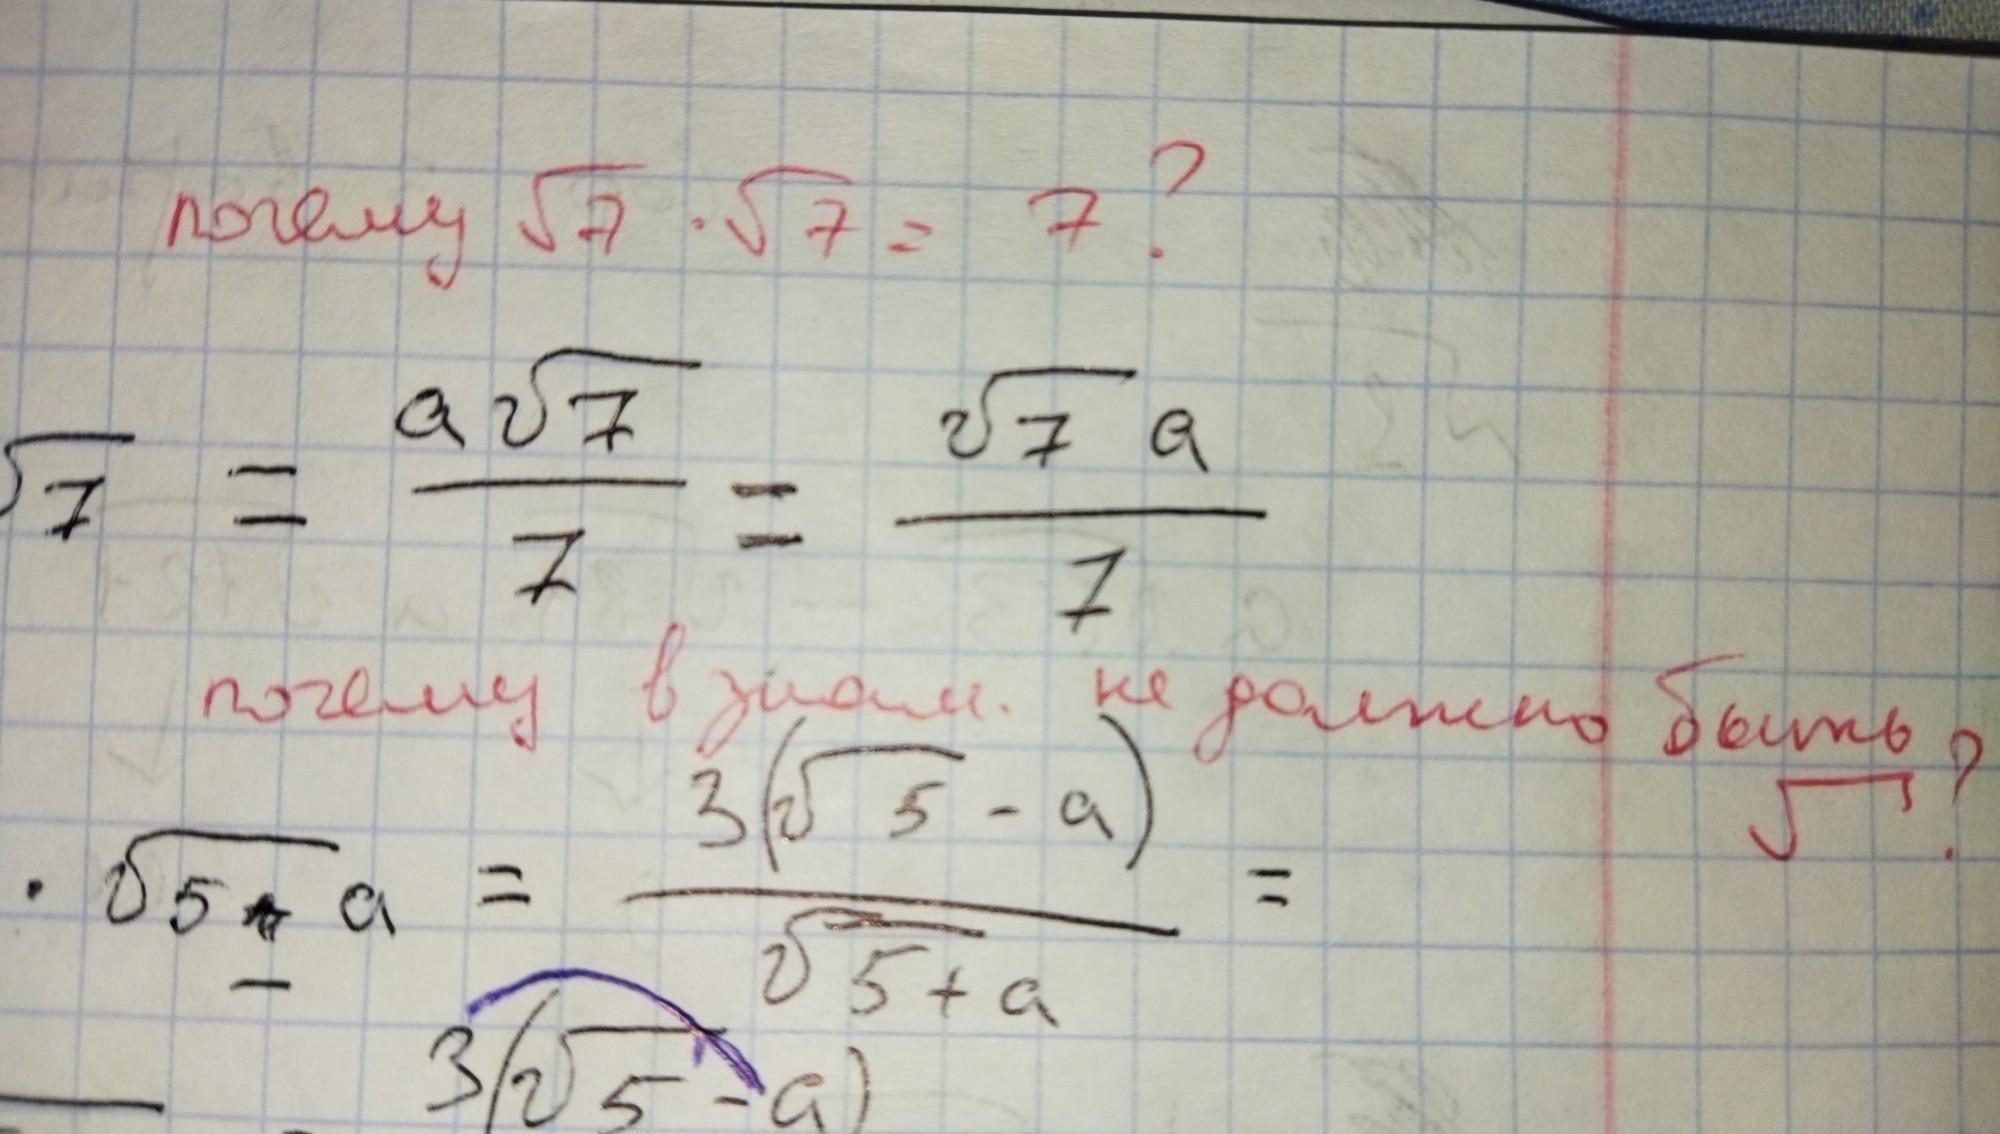 почему √7 · √7 = 7?
√7 = a√7/7 = √7 a/7
почему в знам. не должно быть √ ?
· √5 - a = 3(√5 - a)/√5 + a =
3(√5 - a)